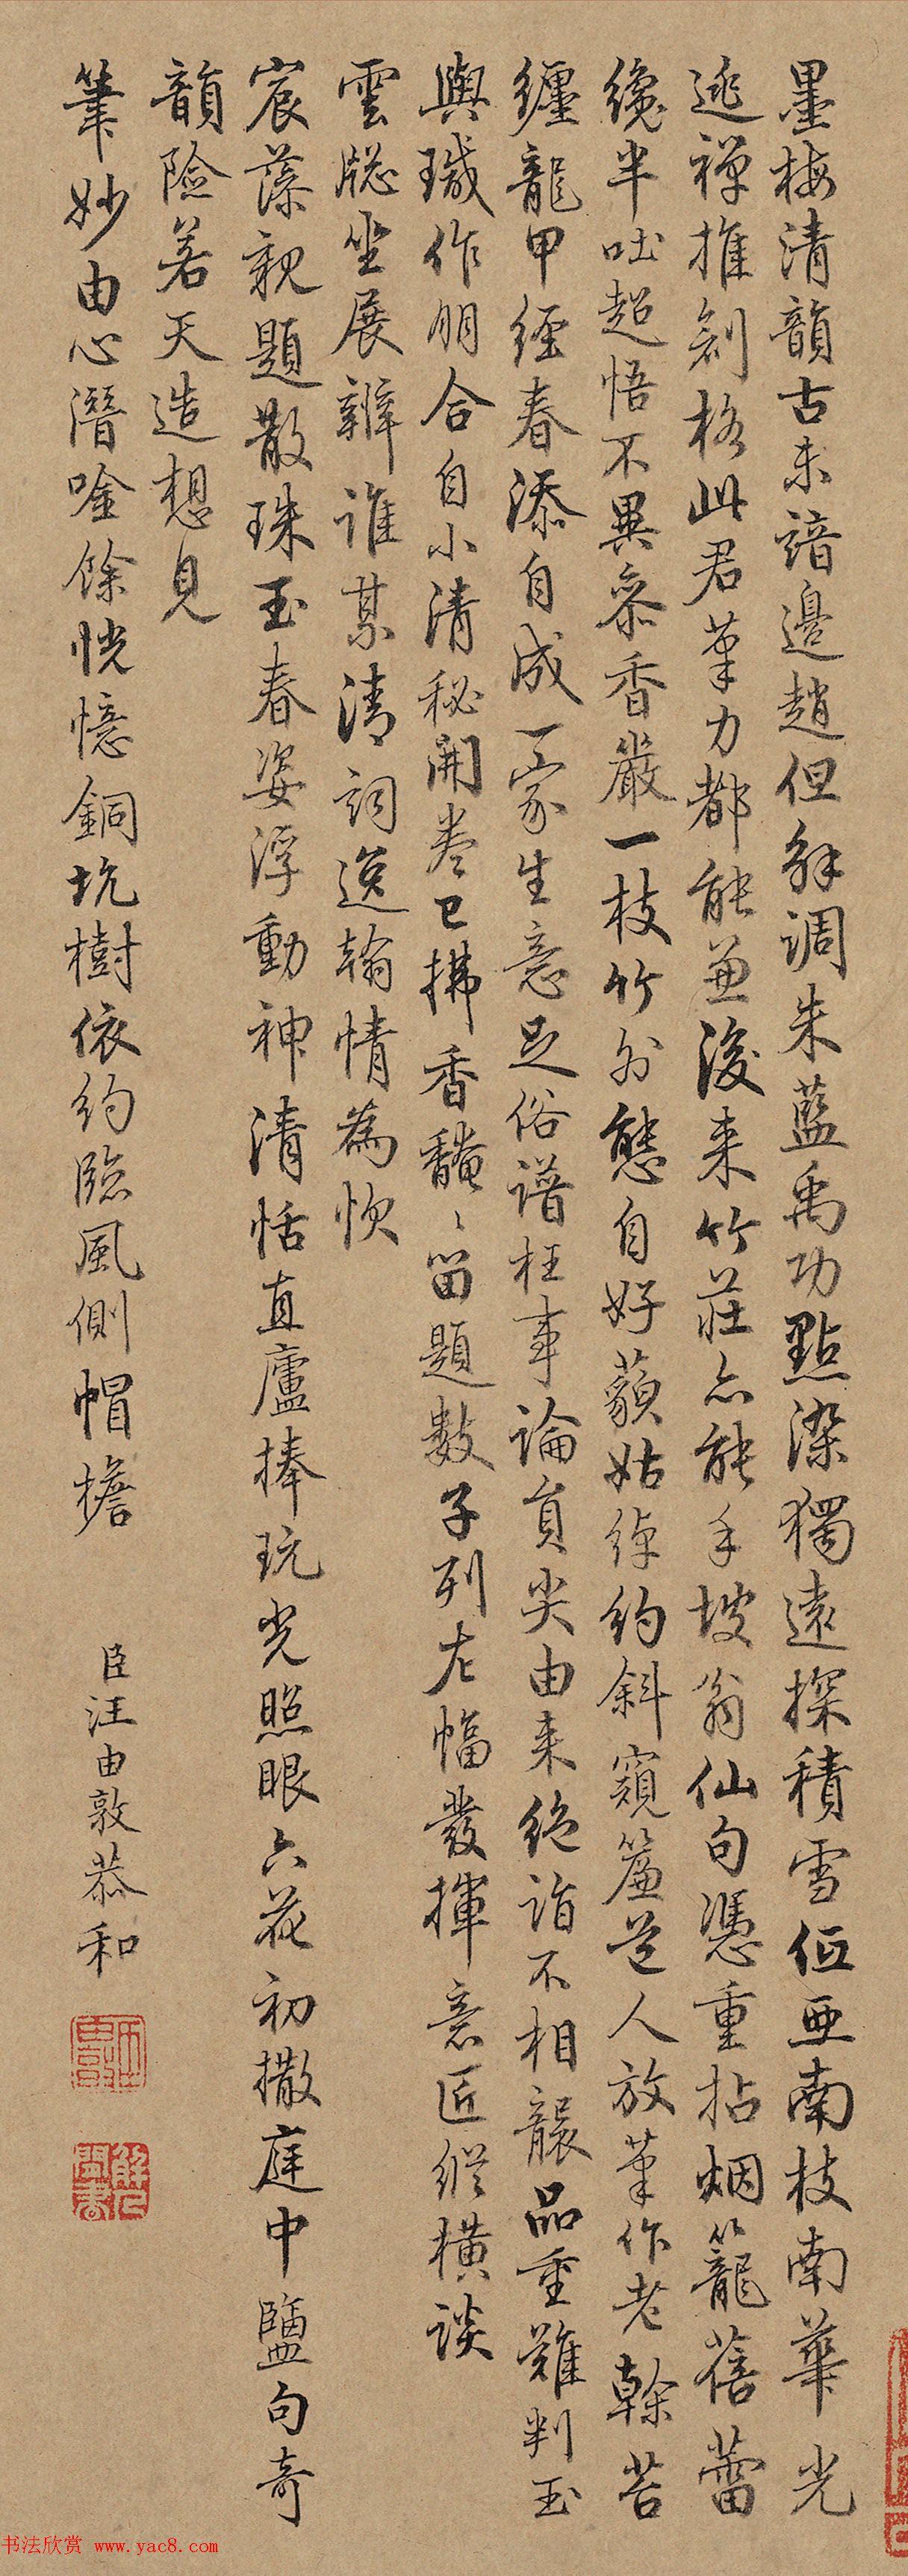 墨梅清韻古未諳邊趙但解調朱藍禹功點染獨遠探積雪俹亞南枝南華光
逃禪推創格此君筆力都能兼後来竹莊亦能手坡翁仙句憑重拈烟籠蓓蕾
纔半吐超悟不異叅香嚴一枝竹外態自好藐姑綽約斜窺簾道人放筆作老榦苔
纏龍甲經春添自成一家生意足俗譜枉事論員尖由来絶詣不相襲品重難判玉
與瑊作朋合自小清秘開卷已拂香馣馣留題數子列左幅發揮意匠縱橫談
雲牕坐展辨誰某清詞逸翰情為忺
宸藻親題散珠玉春姿浮動神清恬直廬捧玩光照眼六花初撒庭中鹽句奇
韻險若天造想見
筆妙由心潛唫餘恍憶銅坑樹依約臨風側帽檐
臣汪由敦恭和
书法欣赏 www.yac8.com